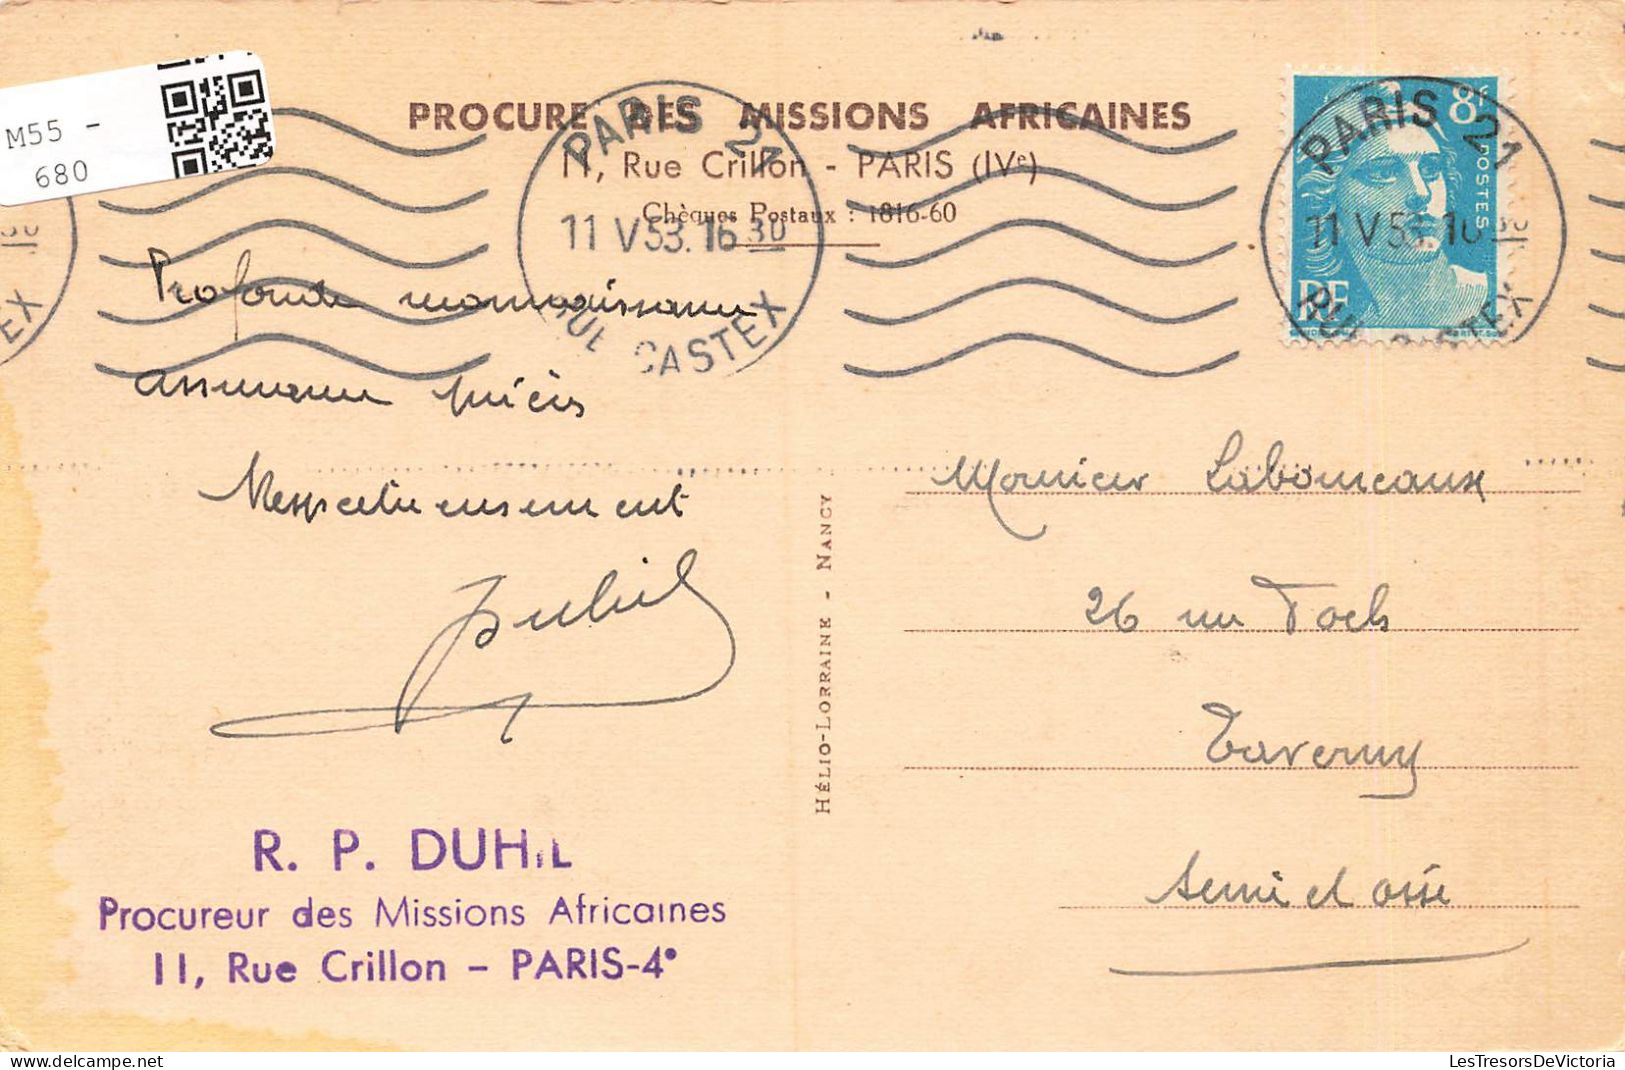 M55 -
680
PROCURE DES MISSIONS AFRICAINES
11, Rue Crillon - PARIS (IVᵉ)
Chèques Postaux : 1816-60
PARIS 21
11 V 53. 16 30
RUE CASTEX
PARIS 21
11 V 53. 16 30
RUE CASTEX
8F
POSTES
RF
Profonde reconnaissance
assurance prières
Respectueusement
Duhil
Monsieur Laboureaux
26 rue Foch
Taverny
Seine et Oise
HÉLIO-LORRAINE - NANCY
R. P. DUHIL
Procureur des Missions Africaines
11, Rue Crillon – PARIS-4°
LesTresorsDeVictoria